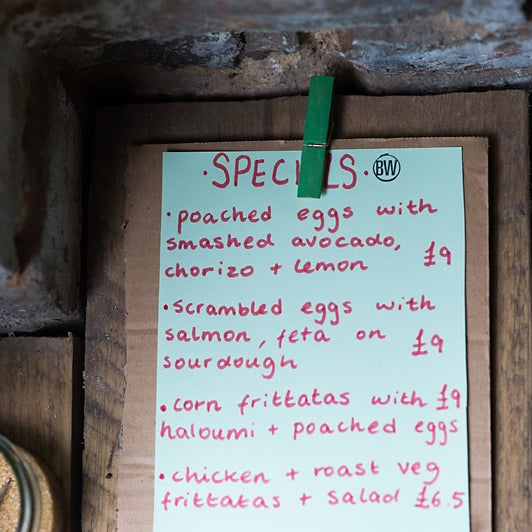 ·SPECIALS· BW
·poached eggs with
smashed avocado,
chorizo + lemon £9
·scrambled eggs with
salmon, feta on £9
sourdough
·corn frittatas with £9
haloumi + poached eggs
·chicken + roast veg
frittatas + salad £6.5